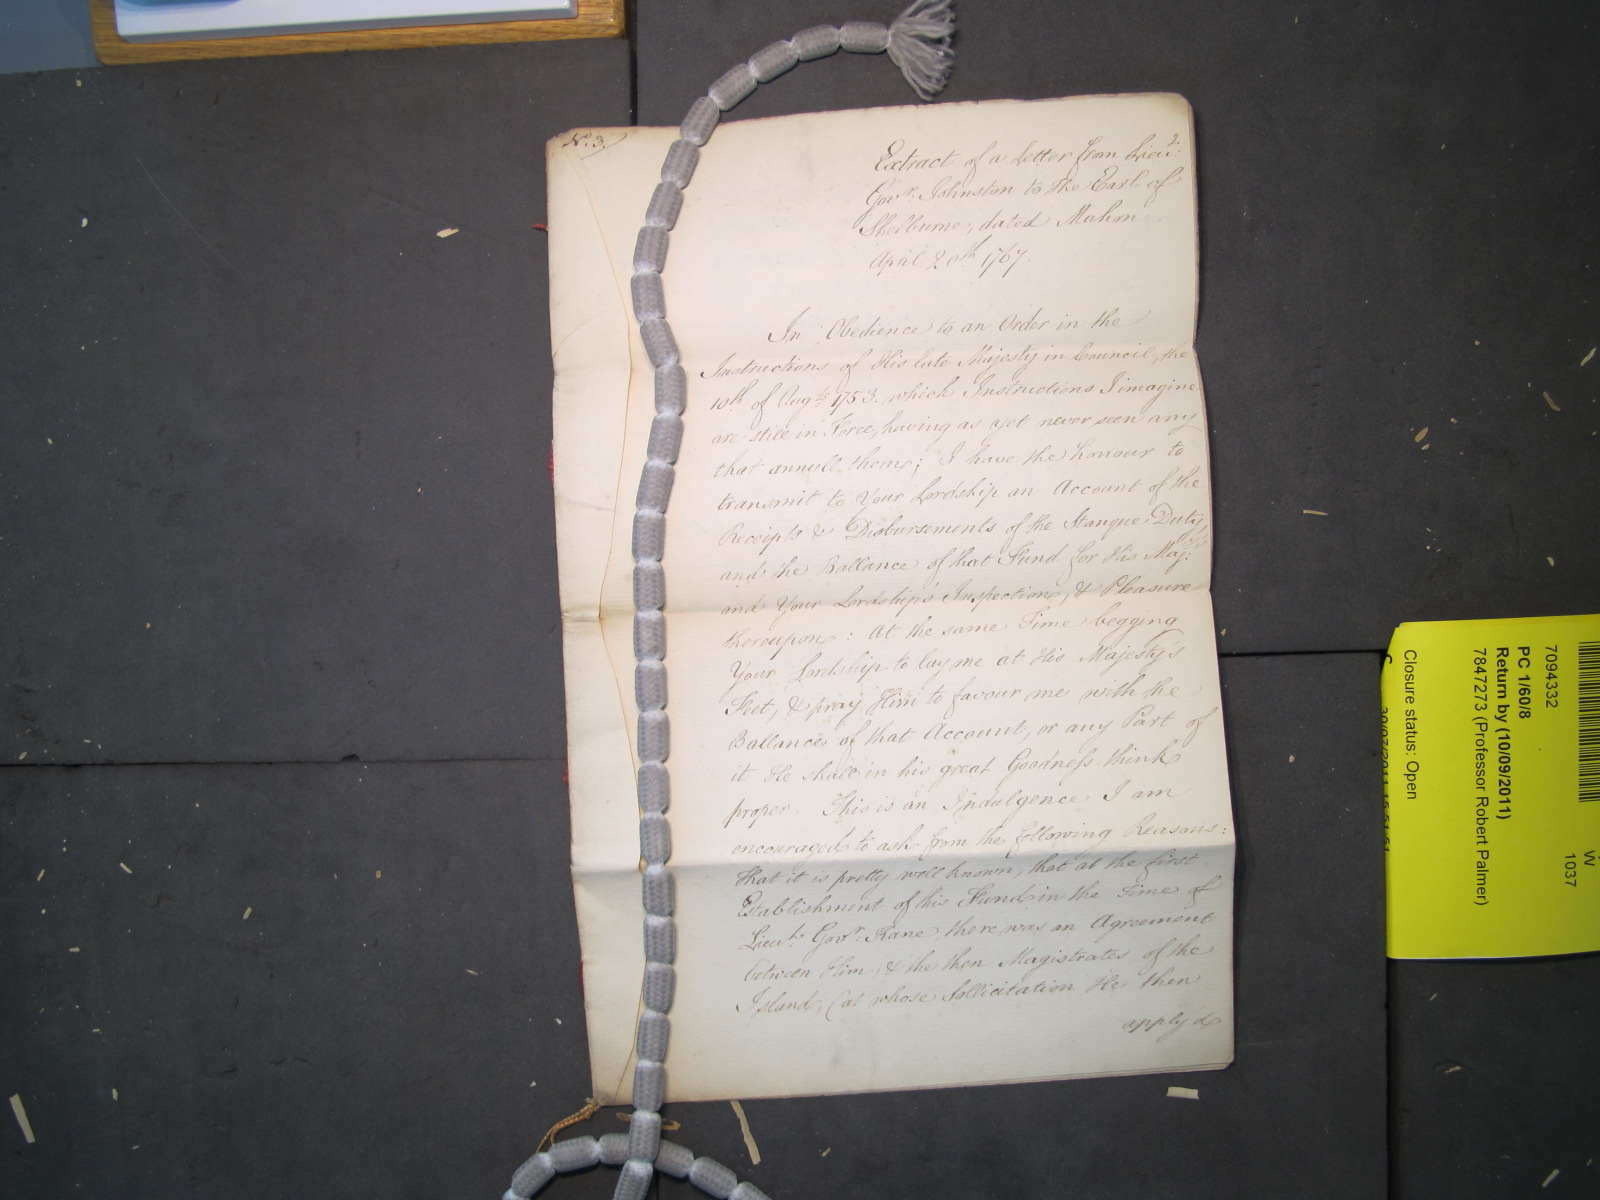 No. 3.
Extract of a Letter from Lieut.
Govr. Johnston to the Earl of
Shelburne, dated Mahon
April 20th 1767.
In Obedience to an Order in the
Instructions of His late Majesty in Council, the
10th of Augst. 1753. which Instructions I imagine
are still in Force, having as yet never seen any
that annull them; I have the honour to
transmit to Your Lordship an Account of the
Receipts & Disbursements of the Stanque Duty,
and the Ballance of that Fund for His Maj:ty's
and Your Lordship's Inspection, & Pleasure
thereupon: At the same Time begging
Your Lordship to lay me at His Majesty's
Feet, & pray Him to favour me with the
Ballance of that Account, or any Part of
it He shall in his great Goodness think
proper. This is an Indulgence I am
encouraged to ask from the following Reasons:
that it is pretty well known, that at the first
Establishment of this Fund in the Time of
Lieut. Govr. Kane, there was an Agreement
between Him, & the then Magistrates of the
Island, (at whose Sollicitation He then
apply'd
7094332
PC 1/60/8
Return by (10/09/2011)
7847273 (Professor Robert Palmer)
Closure status: Open
W
1037